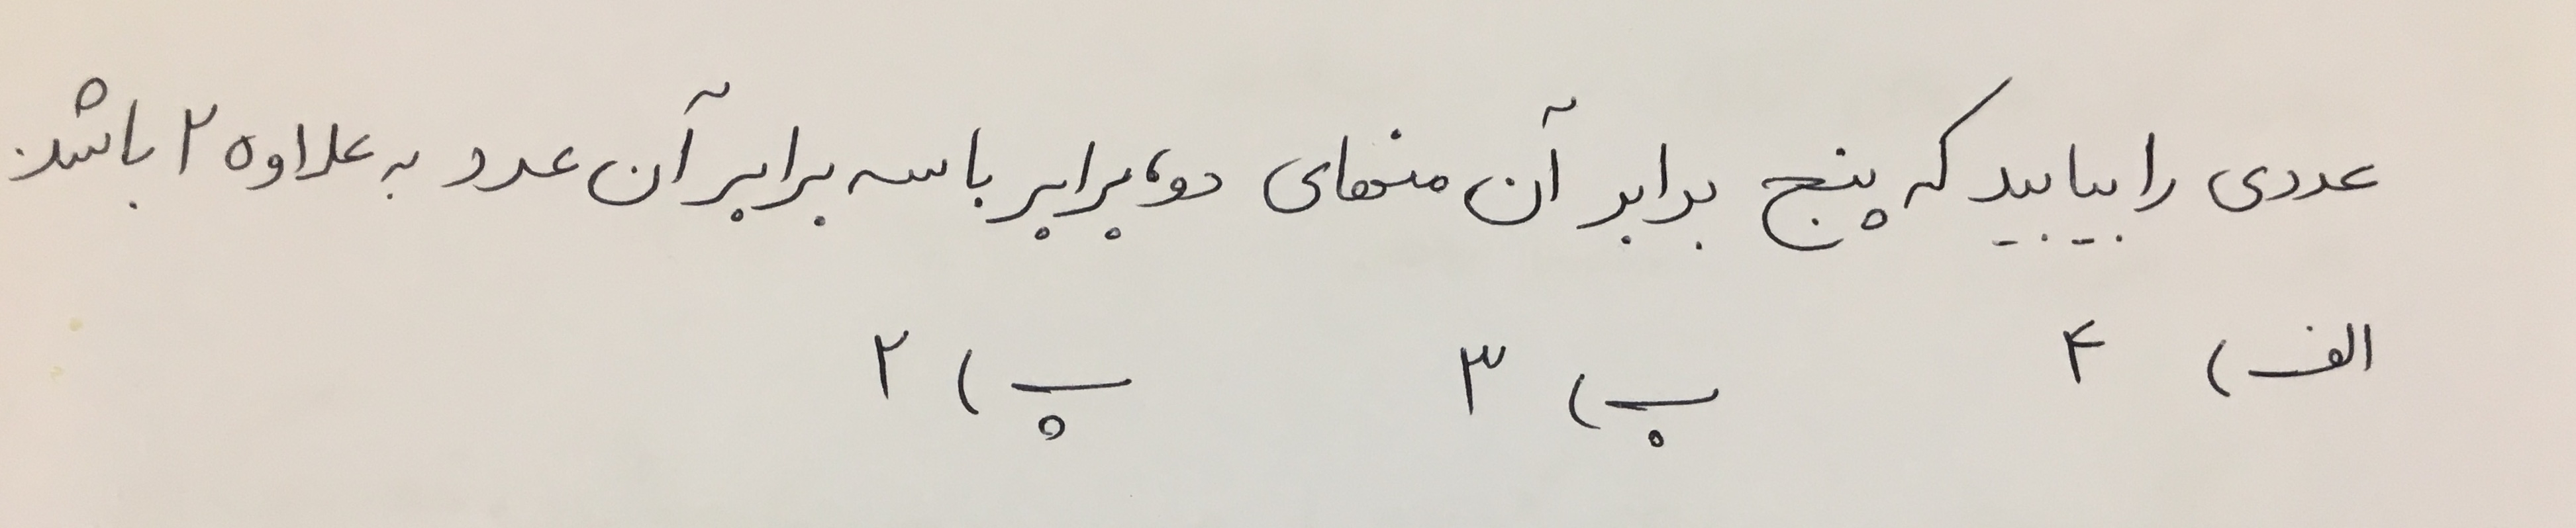 عددی را بیابید که پنج برابر آن منهای دو، برابر با سه برابر آن عدد به علاوه ۲ باشد.
الف) ۴ ب) ۳ پ) ۲